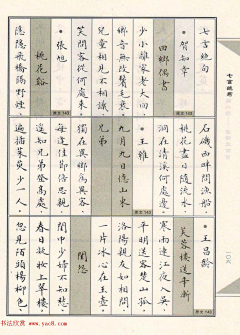 七言絕句
賀知章
回鄉偶書
少小離家老大回
鄉音無改鬢毛衰
兒童相見不相識
笑問客從何處來
張旭
桃花谿
隱隱飛橋隔野煙
石磯西畔問漁船
桃花盡日隨流水
洞在清溪何處邊
王維
九月九日憶山東
兄弟
獨在異鄉為異客
每逢佳節倍思親
遙知兄弟登高處
遍插茱萸少一人
王昌齡
芙蓉樓送辛漸
寒雨連江夜入吳
平明送客楚山孤
洛陽親友如相問
一片冰心在玉壺
閨怨
閨中少婦不知愁
春日凝妝上翠樓
忽見陌頭楊柳色
七言絕句